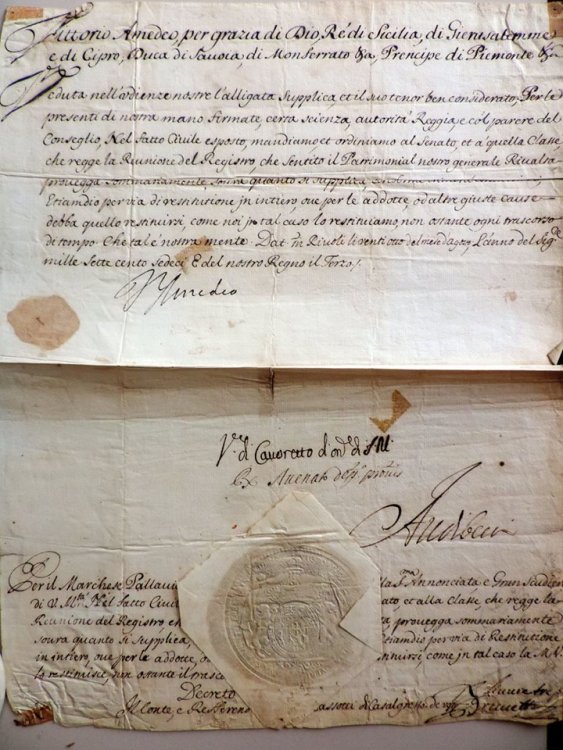 Vittorio Amedeo, per grazia di Dio, Rè di Sicilia, di Gierusalemme
e di Cipro, Duca di Sauoia, di Monferrato &a, Prencipe di Piemonte &a
Veduta nell'Vdienze nostre l'alligata Supplica, et il suo tenor ben considerato, Per le
presenti di nostra mano firmate, certa scienza, autorità Reggia, e col parere del
Conseglio, Nel fatto Civile esposto, mandiamo et ordiniamo al Senato, et à quella Classe,
che regge la Reunione del Registro che Sentito il Patrimonial nostro generale Riualta
proueggа sommariamente soura quanto si supplica
Etiamdio per via di restitutione jn intiero, oue per le addotte, od altre giuste cause
debba quello restituirsi, come noi jn tal caso lo restituiamo, non ostante ogni trascorso
di tempo Che tal è nostra mente. Dat. jn Riuoli li vent'otto del mese d'Agosto, L'anno del Sig.re
mille sette cento sedeci E del nostro Regno il Terzo.
V Amedeo
V.a di Cauoretto d'ord.e di S.M.
Per il Marchese Pallaui
la S.ma Annonciata e Gran Scudier
di V. M.tà Nel fatto Ciuil
ato, et alla Classe, che regge la
Reunione del Registro ch
a, prouegga sommariamente
soura quanto si Supplica,
etiamdio per via di Restitutione
in intiero, oue per le addotte, o
ituirsi come jn tal caso la M.V.
lo restituisce, non ostante il trasco
Decreto
Il Conte e Refferend
di Casalgrasso